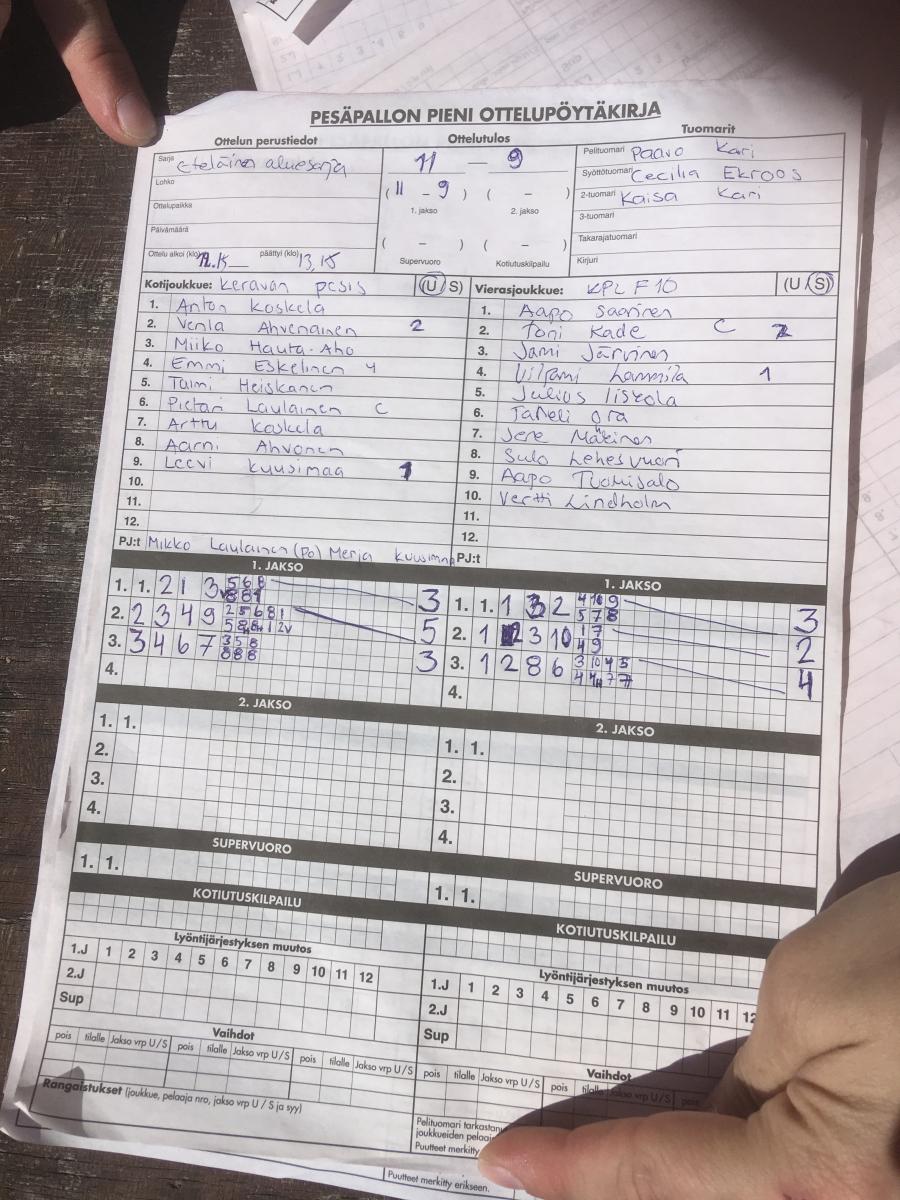 PESÄPALLON PIENI OTTELUPÖYTÄKIRJA
Ottelun perustiedot
Sarja Eteläinen aluesarja
Lohko
Ottelupaikka
Päivämäärä
Ottelu alkoi (klo) päättyi (klo) 13.15
Ottelutulos
11 – 9
( 11 – 9 ) ( – )
1. jakso 2. jakso
( – ) ( – )
Supervuoro Kotiutuskilpailu
Tuomarit
Pelituomari Paavo Kari
Syöttötuomari Cecilia Ekroos
2-tuomari Kaisa Kari
3-tuomari
Takarajatuomari
Kirjuri
Kotijoukkue: Keravan pesis (U / S)
1. Anton Koskela
2. Venla Ahvenainen 2
3. Miiko Hauta-Aho
4. Emmi Eskelinen 4
5. Taimi Heiskanen
6. Pietari Laulainen C
7. Arttu Koskela
8. Aarni Ahvonen
9. Leevi Kuusimaa 1
10.
11.
12.
PJ:t Mikko Laulainen (PO) Merja Kuusimaa
Vierasjoukkue: KPL F10 (U / S)
1. Aapo Saarinen
2. Toni Kade C 2
3. Jami Järvinen
4. Vilpami Lammila 1
5. Julius Iiskola
6. Taneli Ora
7. Jere Mäkinen
8. Sulo Lehesvuori
9. Aapo Tuohisalo
10. Vertti Lindholm
11.
12.
PJ:t
1. JAKSO
1. 1. 2 1 3 5 6 8 3
2. 2 3 4 9 2 5 6 8 1 5
3. 3 4 6 7 3 5 8 3
8 8 8
4.
1. JAKSO
1. 1. 1 3 2 4 10 9 3
5 7 8
2. 1 2 3 10 1 7 2
4 9
3. 1 2 8 6 3 10 4 5 4
4.
2. JAKSO
1. 1.
2.
3.
4.
2. JAKSO
1. 1.
2.
3.
4.
SUPERVUORO
1. 1.
SUPERVUORO
1. 1.
KOTIUTUSKILPAILU
KOTIUTUSKILPAILU
Lyöntijärjestyksen muutos
1.J 1 2 3 4 5 6 7 8 9 10 11 12
2.J
Sup
Lyöntijärjestyksen muutos
1.J 1 2 3 4 5 6 7 8 9 10 11 12
2.J
Sup
Vaihdot
pois tilalle Jakso vrp U / S pois tilalle Jakso vrp U / S pois tilalle Jakso vrp U / S
Vaihdot
pois tilalle Jakso vrp U / S pois tilalle Jakso vrp U / S pois
Rangaistukset (joukkue, pelaaja nro, jakso vrp U / S ja syy)
Pelituomari tarkastanu
joukkueiden pelaaj
Puutteet merkitty
Puutteet merkitty erikseen.